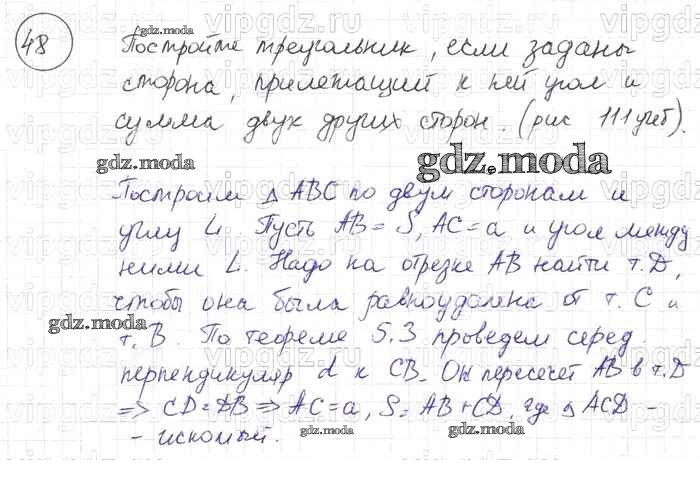 48
Постройте треугольник, если заданы
сторона, прилежащий к ней угол и
сумма двух других сторон. (рис 111 учеб).
gdz.moda
gdz.moda
Построим △ ABC по двум сторонам и
углу L. Пусть AB = S, AC = a и угол между
ними L. Надо на отрезке AB найти т. D,
чтобы она была равноудалена от т. C и
gdz.moda
т. B. По теореме 5.3 проведем серед.
перпендикуляр d к CB. Он пересечет AB в т. D
=> CD = DB => AC = a, S = AB + CD, где △ ACD -
gdz.moda
gdz.moda
- искомый.